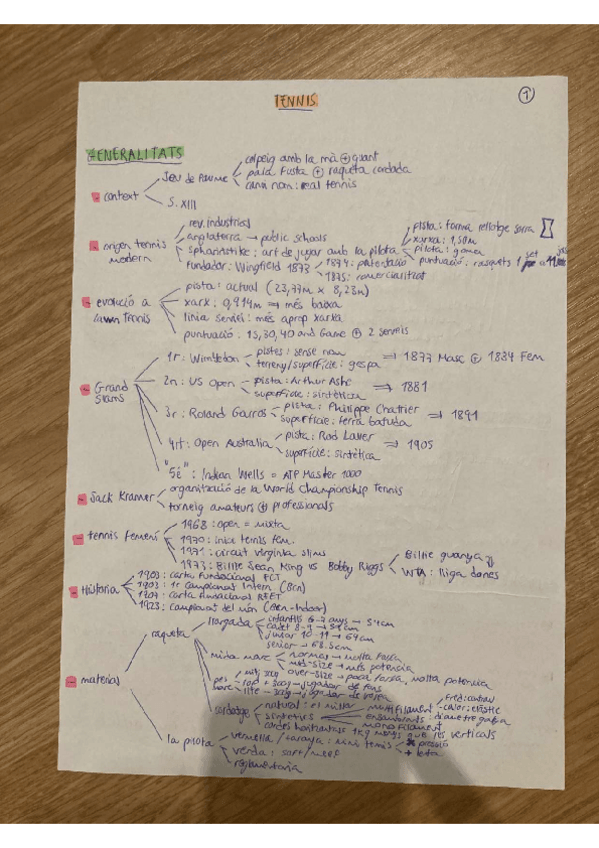 TENNIS
1
GENERALITATS
- context
Jeu de Paume
colpeig amb la mà ⊕ guant
pala fusta ⊕ raqueta cordada
canvi nom: real tennis
S. XIII
- origen tennis modern
rev. industrial
anglaterra → public schools
sphairistike: art de jugar amb la pilota
pista: forma rellotge sorra
xarxa: 1,50m
pilota: goma
puntuació: rasquets 1 set
fundador: Wingfield 1873
1874: patentació
1875: comercialitzat
- evolució a lawn tennis
pista: actual (23,77m x 8,23m)
xarx: 0,914m → més baixa
línia servei: més aprop xarxa
puntuació: 15, 30, 40 and Game ⊕ 2 serveis
- Grand Slams
1r: Wimbledon
pistes: sense nom
terreny/superfície: gespa
⇒ 1877 Masc ⊕ 1884 Fem
2n: US Open
pista: Arthur Ashe
superfície: sintètica
⇒ 1881
3r: Roland Garros
pista: Philippe Chatrier
superfície: terra batuda
⇒ 1891
4rt: Open Australia
pista: Rod Laver
superfície: sintètica
⇒ 1905
"5è": Indian Wells = ATP Master 1000
- Jack Kramer
organització de la World Championship Tennis
torneig amateurs ⊕ professionals
- tennis femení
1968: open = mixta
1970: inici tennis fem.
1971: circuit virginia slims
1973: Billie Jean King vs Bobby Riggs
Billie guanya
WTA: lliga dones
- Història
1903: carta fundacional FCT
1903: 1r campionat intern (Bcn)
carta fundacional RFET
1923: campionat del món (Bcn-Indoor)
- materials
raqueta
llargada
infantils 6-7 anys → 54cm
cadet 8-9 →
junior 10-11 → 64cm
senior → 68.5cm
mida marc
normas → molta força
mid-size → més potencia
over-size → poca força, molta potencia
pes marc
top + → jugador de fons
lite - → jugador de volea
cordatge
natural: el millor
sintètics
multifilament
Fred: contrau
calor: elàstic
monofilament
cordes horitzontals 1kg menys que les verticals
la pilota
vermella / taronja: mini tennis
pressió
+ lenta
verda: soft/
reglamentaria